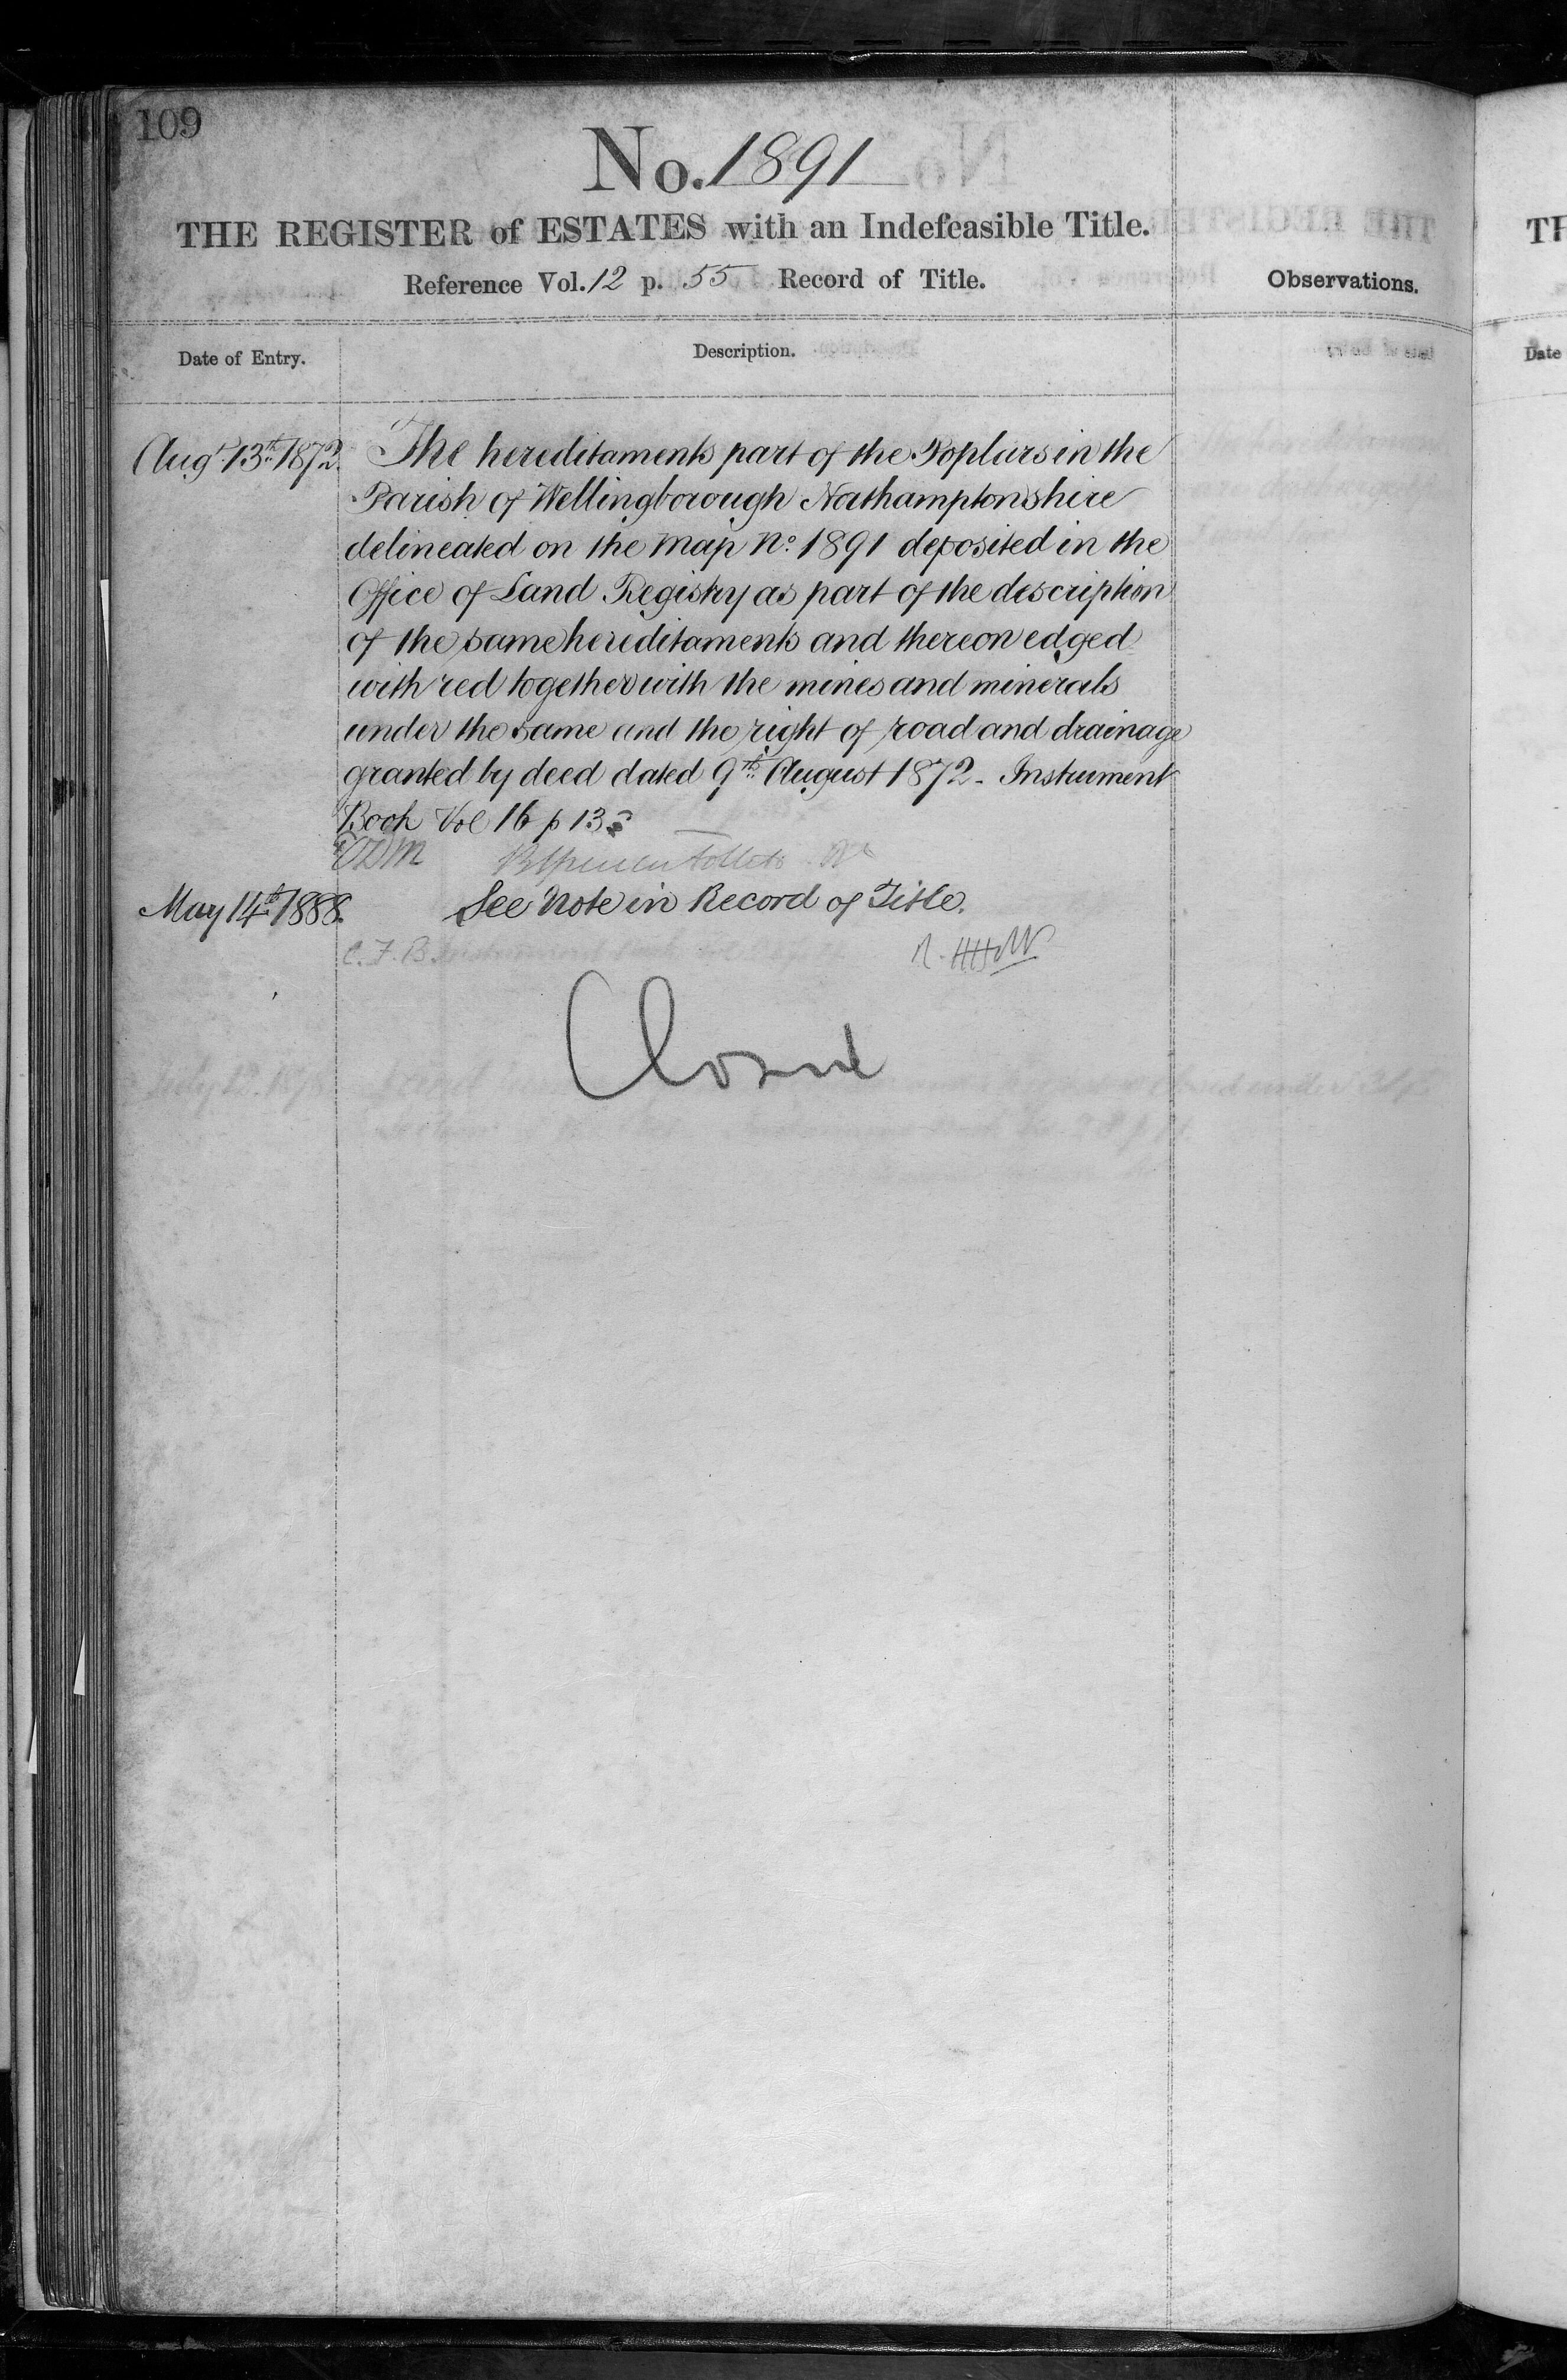 109
No. 1891
THE REGISTER of ESTATES with an Indefeasible Title.
Reference Vol. 12 p. 55 Record of Title.
Observations.
Date of Entry.
Description.
Augt 13th 1872.
The hereditaments part of the Poplars in the
Parish of Wellingborough Northamptonshire
delineated on the Map No. 1891 deposited in the
Office of Land Registry as part of the description
of the same hereditaments and thereon edged
with red together with the mines and minerals
under the same and the right of road and drainage
granted by deed dated 9th August 1872 - Instrument
Book Vol 16 p 135
May 14th 1888.
See Note in Record of Title.
C. F. B.
Closed
TH
Date